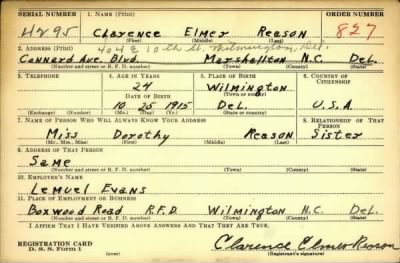 SERIAL NUMBER 1. Name (Print) ORDER NUMBER
Clarence Elmer Reason 827
(First) (Middle) (Last)
404 E 10th St. Wilmington, Del.
2. Address (Print)
Marshallton N.C. Del.
(Number and street or R. F. D. number) (Town) (County) (State)
3. Telephone 4. Age in Years 5. Place of Birth 6. Country of Citizenship
24 Wilmington
Date of Birth (Town or county)
10 25 1915 Del. U.S.A
(Exchange) (Number) (Mo.) (Day) (Yr.) (State or country)
7. Name of Person Who Will Always Know Your Address 8. Relationship of That Person
Miss Dorothy Reason Sister
(Mr., Mrs., Miss) (First) (Middle) (Last)
9. Address of That Person
Same
(Number and street or R. F. D. number) (Town) (County) (State)
10. Employer's Name
Lemuel Evans
11. Place of Employment or Business
Boxwood Road R.F.D. Wilmington N.C. Del.
(Number and street or R. F. D. number) (Town) (County) (State)
I Affirm That I Have Verified Above Answers and That They Are True.
REGISTRATION CARD
D. S. S. Form 1
Clarence Elmer Reason
(Registrant's signature)